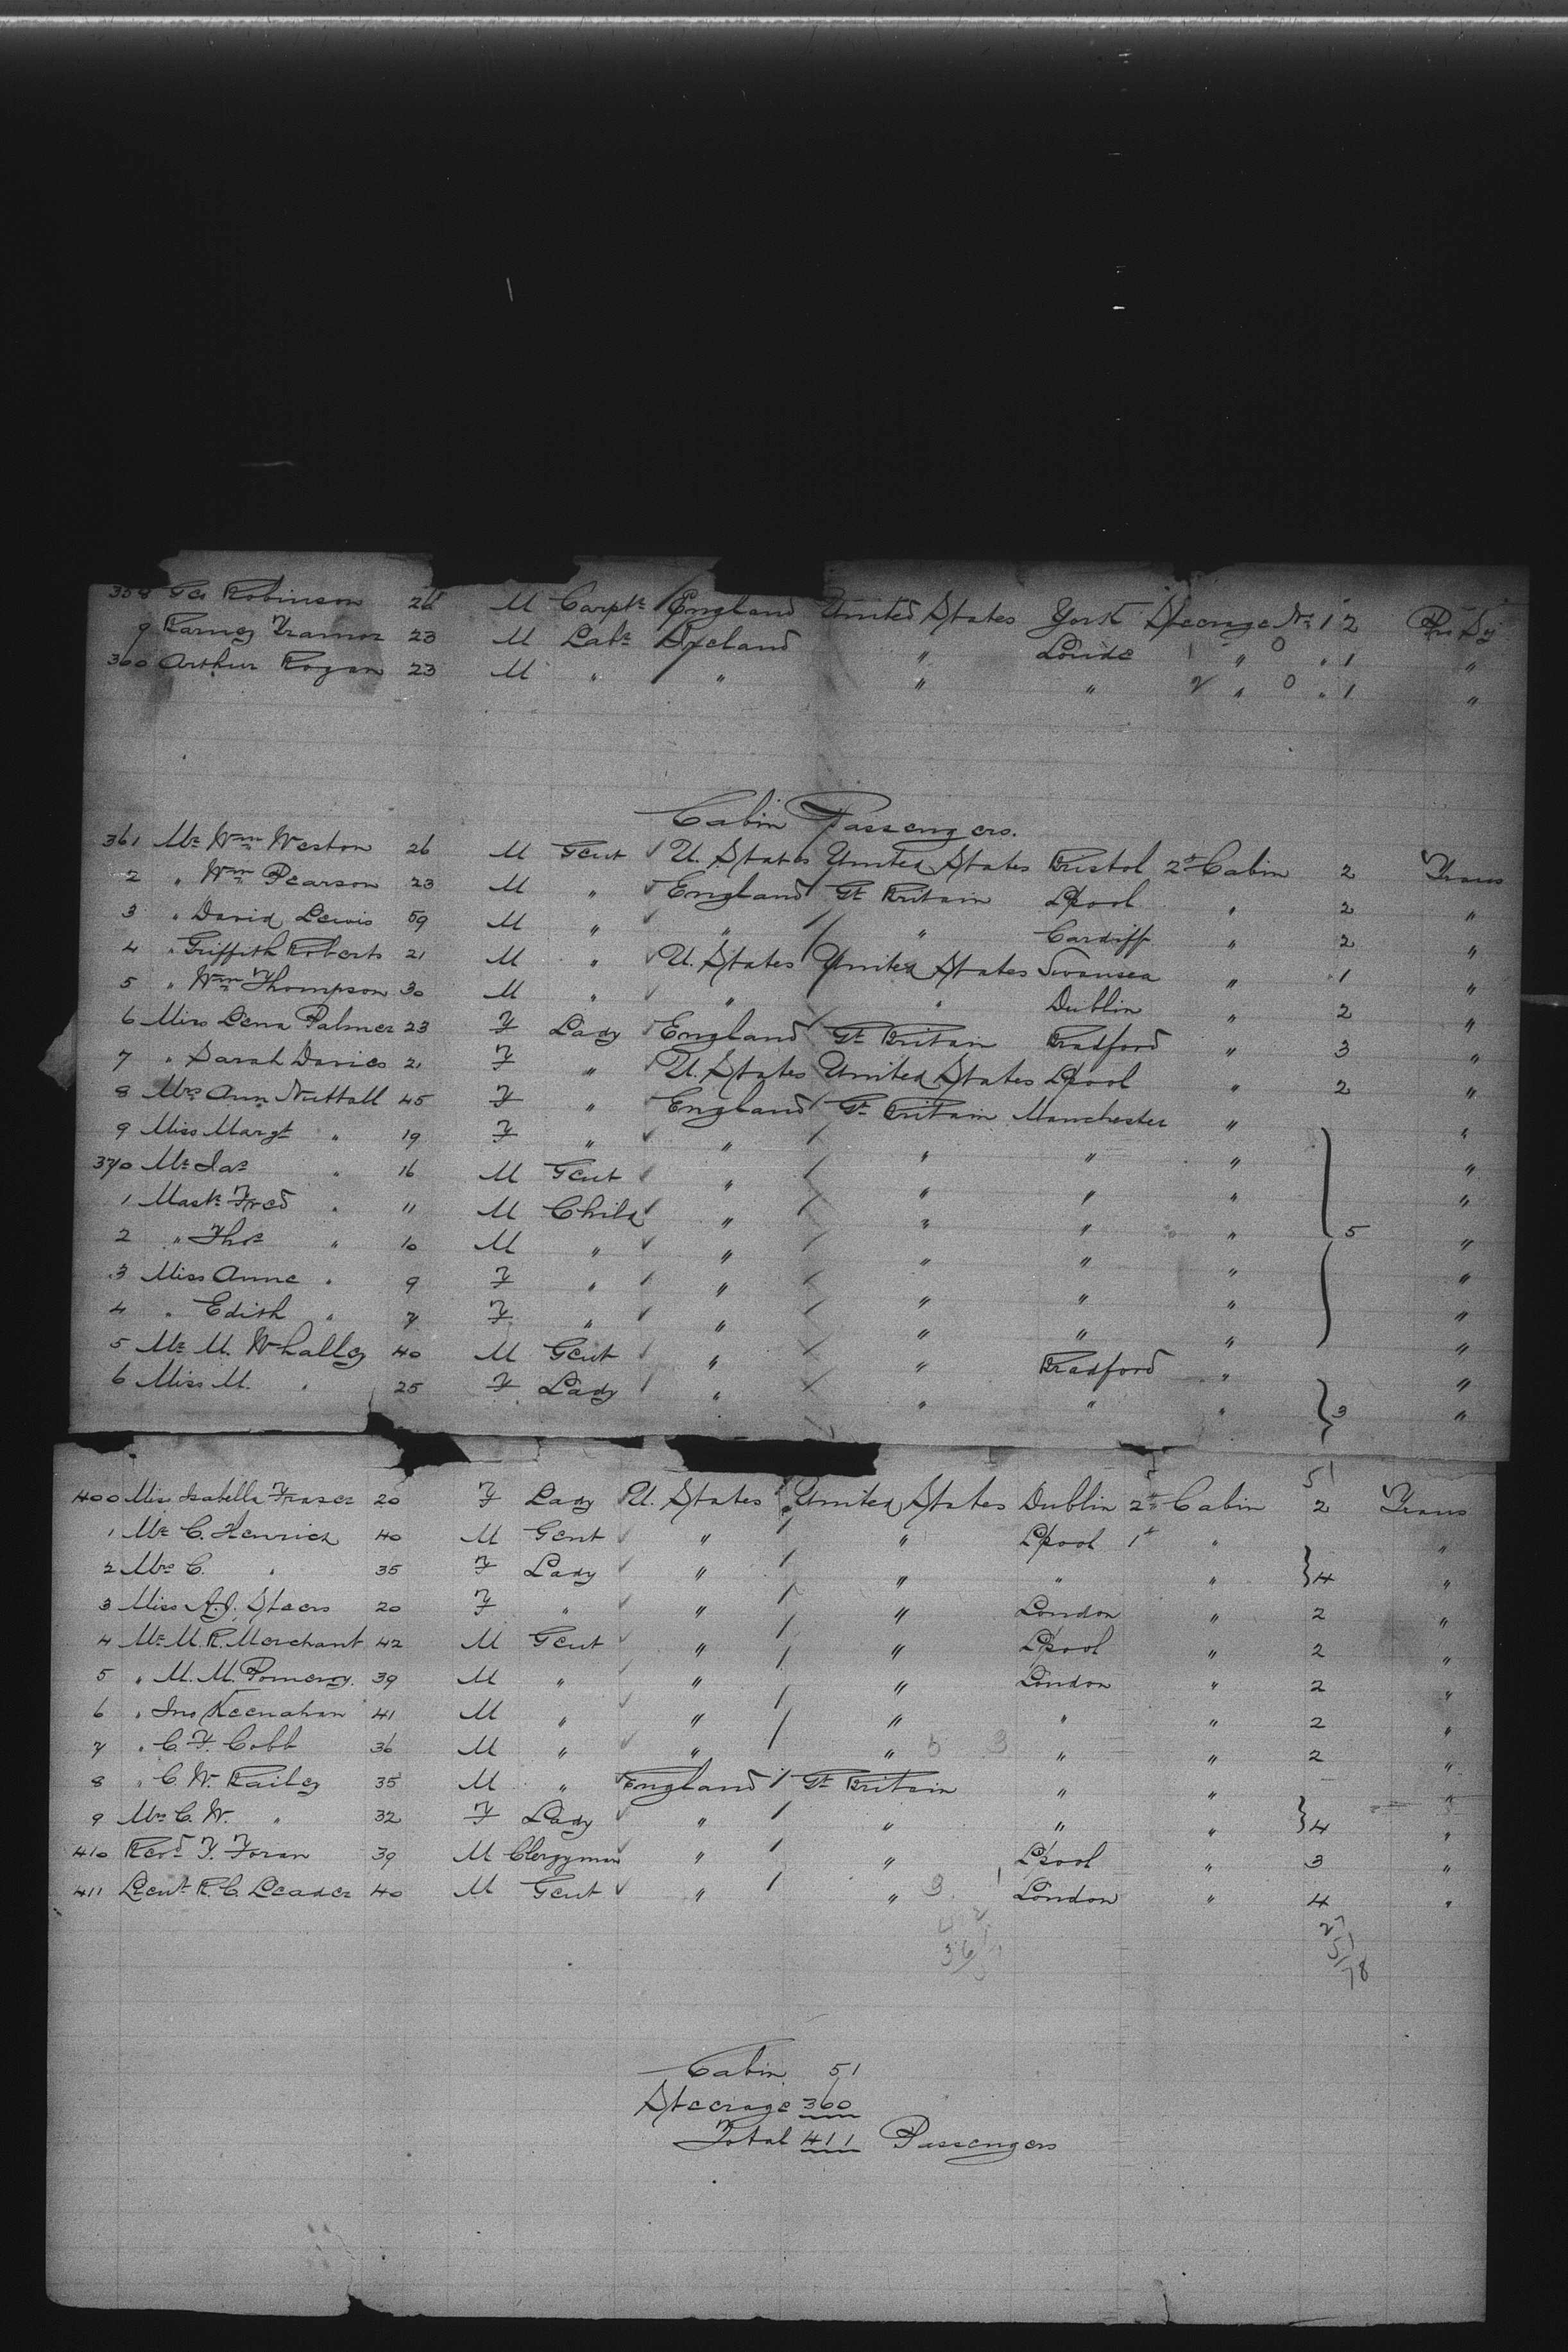 358 Geo Robinson 26 M Carptr England United States York Steerage No 1 2 Pro Sj
9 Barney Trainor 23 M Labr Ireland " Londe 1 " 0 " 1 "
360 Arthur Rogan 23 M " " " " 2 " 0 " 1 "
Cabin Passengers.
361 Mr Wm Weston 26 M Gent U. States United States Bristol 2d Cabin 2 Trans
2 " Wm Pearson 23 M " England Gt Britain Lpool " 2 "
3 " David Lewis 59 M " " " Cardiff " 2 "
4 " Griffith Roberts 21 M " U. States United States Swansea " 1 "
5 " Wm Thompson 30 M " " " Dublin " 2 "
6 Miss Lena Palmer 23 F Lady England Gt Britain Bradford " 3 "
7 " Sarah Davies 21 F " U. States United States Lpool " 2 "
8 Mrs Ann Nuttall 45 F " England Gt Britain Manchester " "
9 Miss Margt " 19 F " " " " " "
370 Mr Jas " 16 M Gent " " " " "
1 Mastr Fred " 11 M Child " " " " 5 "
2 " Thos " 10 M " " " " " "
3 Miss Anne " 9 F " " " " " "
4 " Edith " 7 F " " " " " "
5 Mr M. Whalley 40 M Gent " " Bradford " "
6 Miss M. " 25 F Lady " " " " 3 "
51
400 Miss Isabella Fraser 20 F Lady U. States United States Dublin 2d Cabin 2 Trans
1 Mr C. Henrich 40 M Gent " " Lpool 1st " "
2 Mrs C. " 35 F Lady " " " " 4 "
3 Miss A. J. Steers 20 F " " " London " 2 "
4 Mr M. R. Merchant 42 M Gent " " Lpool " 2 "
5 " M. M. Pomeroy. 39 M " " " London " 2 "
6 " Jno Keenahan 41 M " " " " " 2 "
7 " C. F. Cobb 36 M " " " " " 2 "
8 " C. W. Bailey 35 M " England Gt Britain " " "
9 Mrs C. W. " 32 F Lady " " " " 4 "
410 Revd T. Foran 39 M Clergyman " " Lpool " 3 "
411 Lieut R. C. Leader 40 M Gent " " London " 4 "
27
51
78
Cabin 51
Steerage 360
Total 411 Passengers